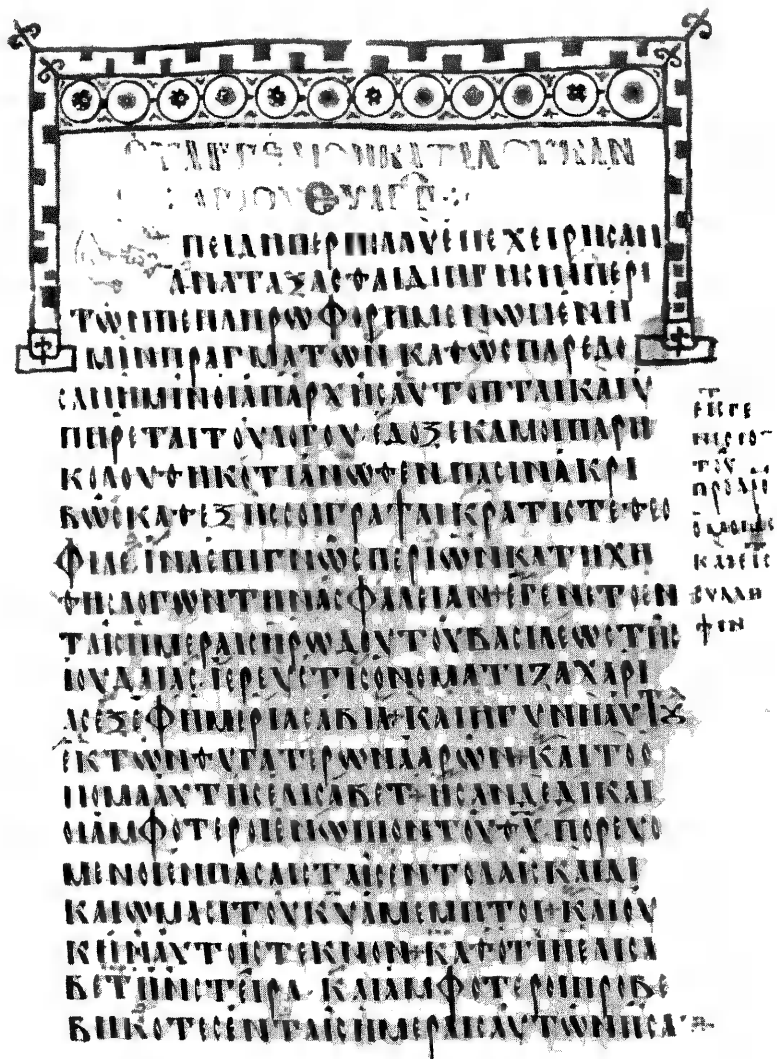 ΕΥΑΓΓΕΛΙΟΝΚΑΤΑΛΟΥΚΑΝ
ΠΕΙΔΗΠΕΡΠΟΛΛΥΕΠΕΧΕΙΡΗϹΑΝ
ΑΝΑΤΑΞΑϹΘΑΙΔΙΗΓΗϹΙΝΠΕΡΙ
ΤΩΝΠΕΠΛΗΡΩΦΟΡΗΜΕΝΩΝΕΝΗ
ΜΙΝΠΡΑΓΜΑΤΩΝΚΑΘΩϹΠΑΡΕΔΟ
ϹΑΝΗΜΙΝΟΙΑΠΑΡΧΗϹΑΥΤΟΠΤΑΙΚΑΙΥ
ΠΗΡΕΤΑΙΤΟΥΛΟΓΟΥ·ΕΔΟΞΕΚΑΜΟΙΠΑΡΗ
ΚΟΛΟΥΘΗΚΟΤΙΑΝΩΘΕΝΠΑϹΙΝΑΚΡΙ
ΒΩϹΚΑΘΕΞΗϹϹΟΙΓΡΑΨΑΙΚΡΑΤΙϹΤΕΘΕΟ
ΦΙΛΕΙΝΑΕΠΙΓΝΩϹΠΕΡΙΩΝΚΑΤΗΧΗ
ΘΗϹΛΟΓΩΝΤΗΝΑϹΦΑΛΕΙΑΝ+ΕΓΕΝΕΤΟΕΝ
ΤΑΙϹΗΜΕΡΑΙϹΗΡΩΔΟΥΤΟΥΒΑϹΙΛΕΩϹΤΗϹ
ΙΟΥΔΑΙΑϹ·ΙΕΡΕΥϹΤΙϹΟΝΟΜΑΤΙΖΑΧΑΡΙ
ΑϹΕΞΕΦΗΜΕΡΙΑϹΑΒΙΑ+ΚΑΙΗΓΥΝΗΑΥΤȢ
ΕΚΤΩΝΘΥΓΑΤΕΡΩΝΑΑΡΩΝ+ΚΑΙΤΟΟ
ΝΟΜΑΑΥΤΗϹΕΛΙϹΑΒΕΤ+ΗϹΑΝΔΕΔΙΚΑΙ
ΟΙΑΜΦΟΤΕΡΟΙΕΝΩΠΙΟΝΤΟΥΘΥ·ΠΟΡΕΥΟ
ΜΕΝΟΙΕΝΠΑϹΑΙϹΤΑΙϹΕΝΤΟΛΑΙϹΚΑΙΔΙ
ΚΑΙΩΜΑϹΙΤΟΥΚΥΑΜΕΜΠΤΟΙ+ΚΑΙΟΥ
ΚΗΝΑΥΤΟΙϹΤΕΚΝΟΝ+ΚΑΘΟΤΙΗΕΛΙϹΑ
ΒΕΤΗΝϹΤΕΙΡΑ·ΚΑΙΑΜΦΟΤΕΡΟΙΠΡΟΒΕ
ΒΗΚΟΤΕϹΕΝΤΑΙϹΗΜΕΡΑΙϹΑΥΤΩΝΗϹΑ
ΤΟΥ
ΚΑΙΕΙϹ
ϹΥΛΛΗ
ΨΙΝ